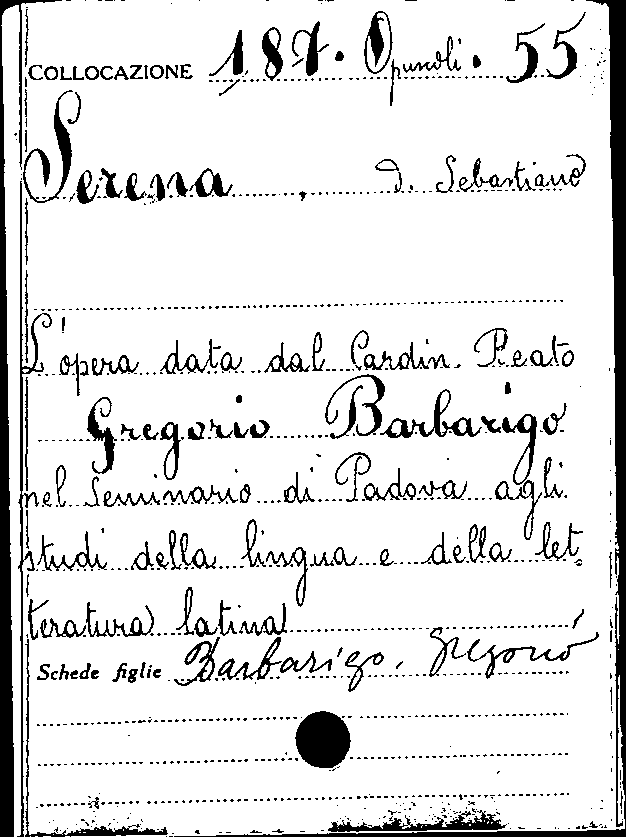 COLLOCAZIONE 187. Opuscoli. 55
Serena, D. Sebastiano
L'opera data dal Cardin. Beato
Gregorio Barbarigo
nel Seminario di Padova agli
studi della lingua e della let-
teratura latina
Schede figlie Barbarigo, Gregorio